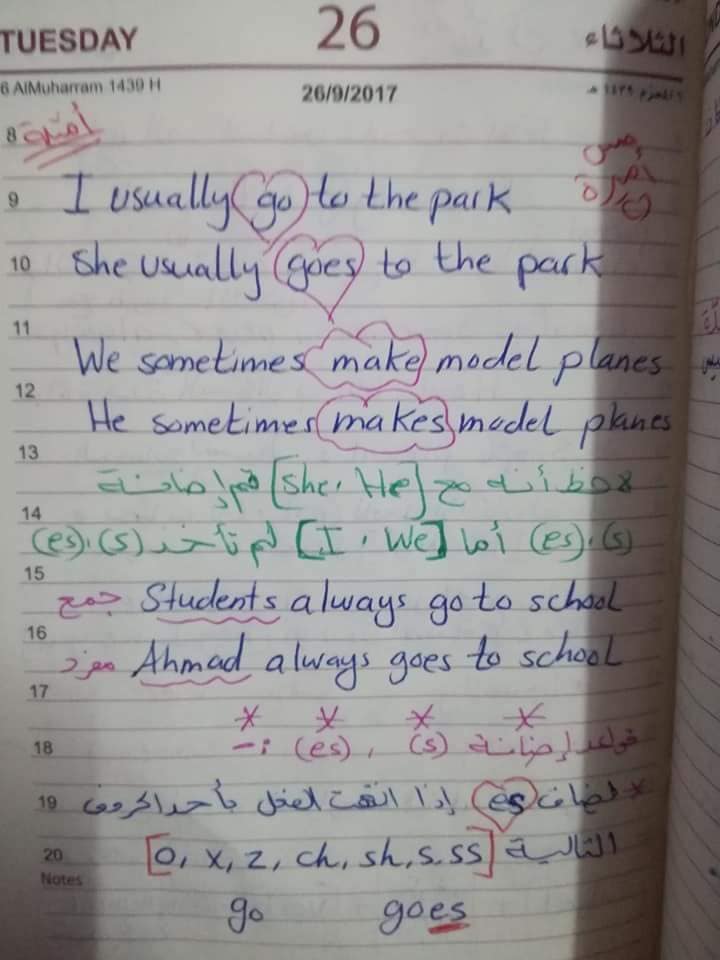 TUESDAY 26 الثلاثاء
6 AlMuharram 1439 H 26/9/2017 ٦ المحرم ١٤٣٩ هـ
8 أمثلة
9 I usually go to the park
10 She usually goes to the park
11 We sometimes make model planes
12 He sometimes makes model planes
13 لاحظ أنه مع [She، He] تم إضافة
14 (s)، (es) أما [I، We] لم تأخذ (s)، (es)
15 جمع Students always go to school
16 مفرد Ahmad always goes to school
17
18 قواعد إضافة (s) , (es) :-
19 * تضاف es إذا انتهت الفعل بأحد الحروف
20 التالية [o, x, z, ch, sh, s. ss]
Notes
go goes